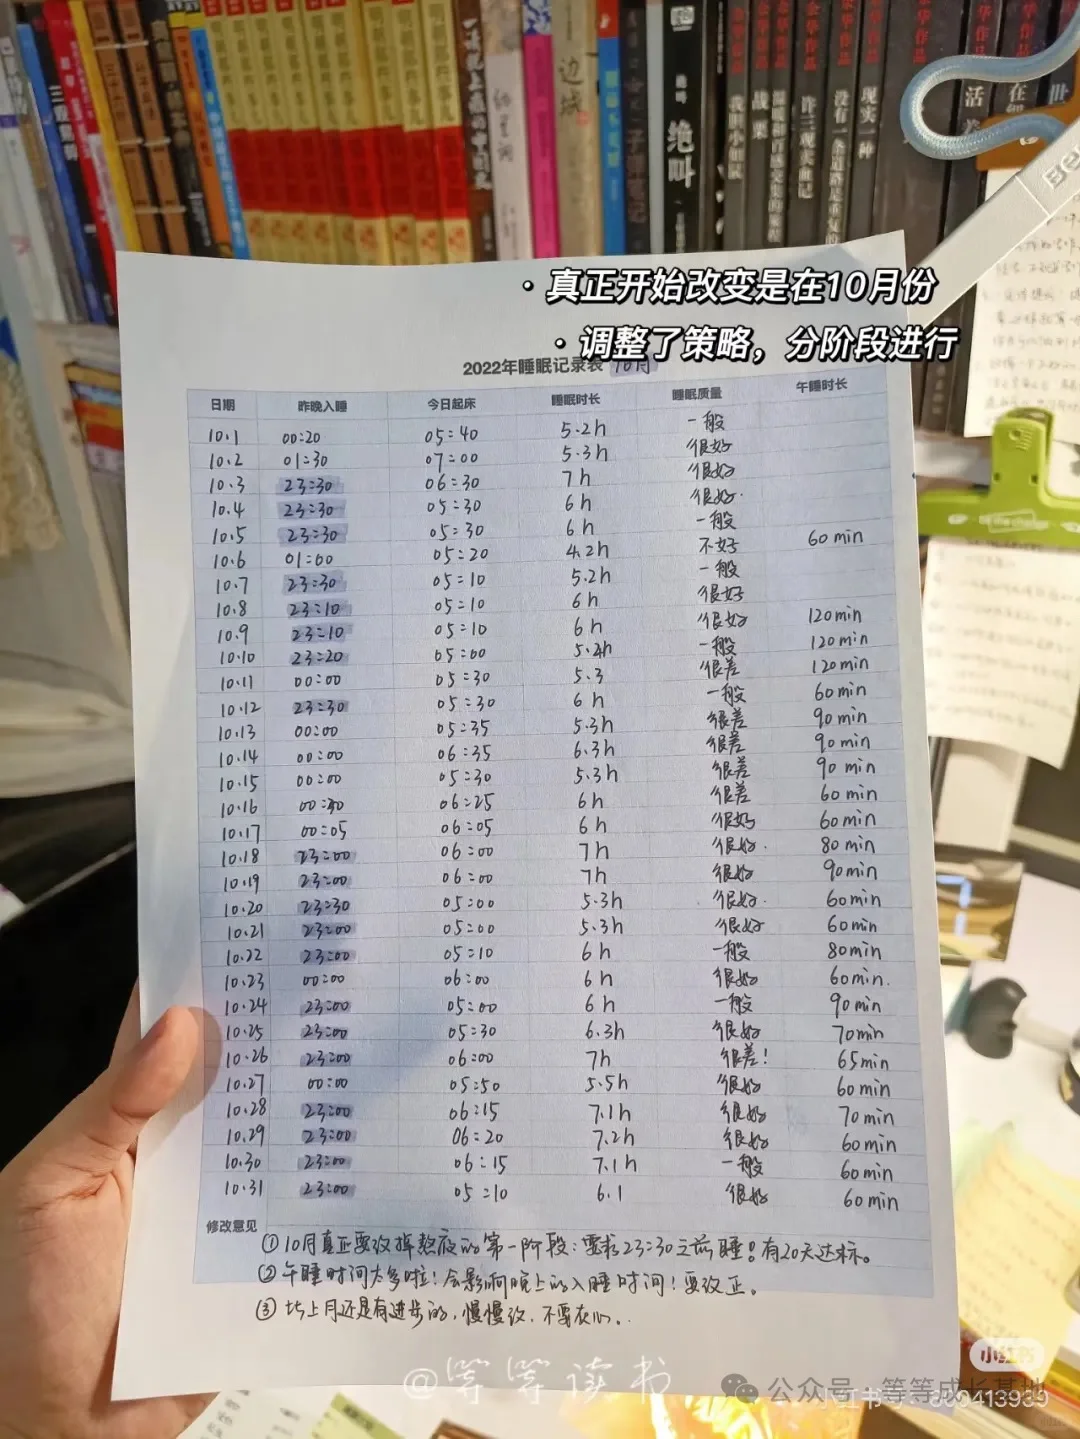 边城
绝叫
我胆小如鼠
战栗
许三观卖血记
现实一种
· 真正开始改变是在10月份
· 调整了策略，分阶段进行
2022年睡眠记录表 10月
日期 昨晚入睡 今日起床 睡眠时长 睡眠质量 午睡时长
10.1 00:20 05:40 5.2h 一般
10.2 01:30 07:00 5.3h 很好
10.3 23:30 06:30 7h 很好
10.4 23:30 05:30 6h 很好.
10.5 23:30 05:30 6h 一般
10.6 01:00 05:20 4.2h 不好 60min
10.7 23:30 05:10 5.2h 一般
10.8 23:10 05:10 6h 很好
10.9 23:10 05:10 6h 很好 120min
10.10 23:20 05:00 5.4h 一般 120min
10.11 00:00 05:30 5.3 很差 120min
10.12 23:30 05:30 6h 一般 60min
10.13 00:00 05:35 5.3h 很差 90min
10.14 00:00 06:35 6.3h 很差 90min
10.15 00:00 05:30 5.3h 很差 90min
10.16 00:30 06:25 6h 很差 60min
10.17 00:05 06:05 6h 很好 60min
10.18 23:00 06:00 7h 很好. 80min
10.19 23:00 06:00 7h 很好 90min
10.20 23:30 05:00 5.3h 很好. 60min
10.21 23:00 05:00 5.3h 很好 60min
10.22 23:00 05:10 6h 一般 80min
10.23 00:00 06:00 6h 很好 60min.
10.24 23:00 05:00 6h 一般 90min
10.25 23:00 05:30 6.3h 很好 70min
10.26 23:00 06:00 7h 很差! 65min
10.27 00:00 05:50 5.5h 很好 60min
10.28 23:00 06:15 7.1h 很好 70min
10.29 23:00 06:20 7.2h 很好 60min
10.30 23:00 06:15 7.1h 一般 60min
10.31 23:00 05:10 6.1 很好 60min
修改意见
①10月真正要改掉熬夜的第一阶段：需求23:30之前睡！有20天达标。
②午睡时间太多啦！会影响晚上的入睡时间！要改正。
③比上月还是有进步的，慢慢改，不要灰心。
小红书
@等等读书
公众号 · 等等成长基地